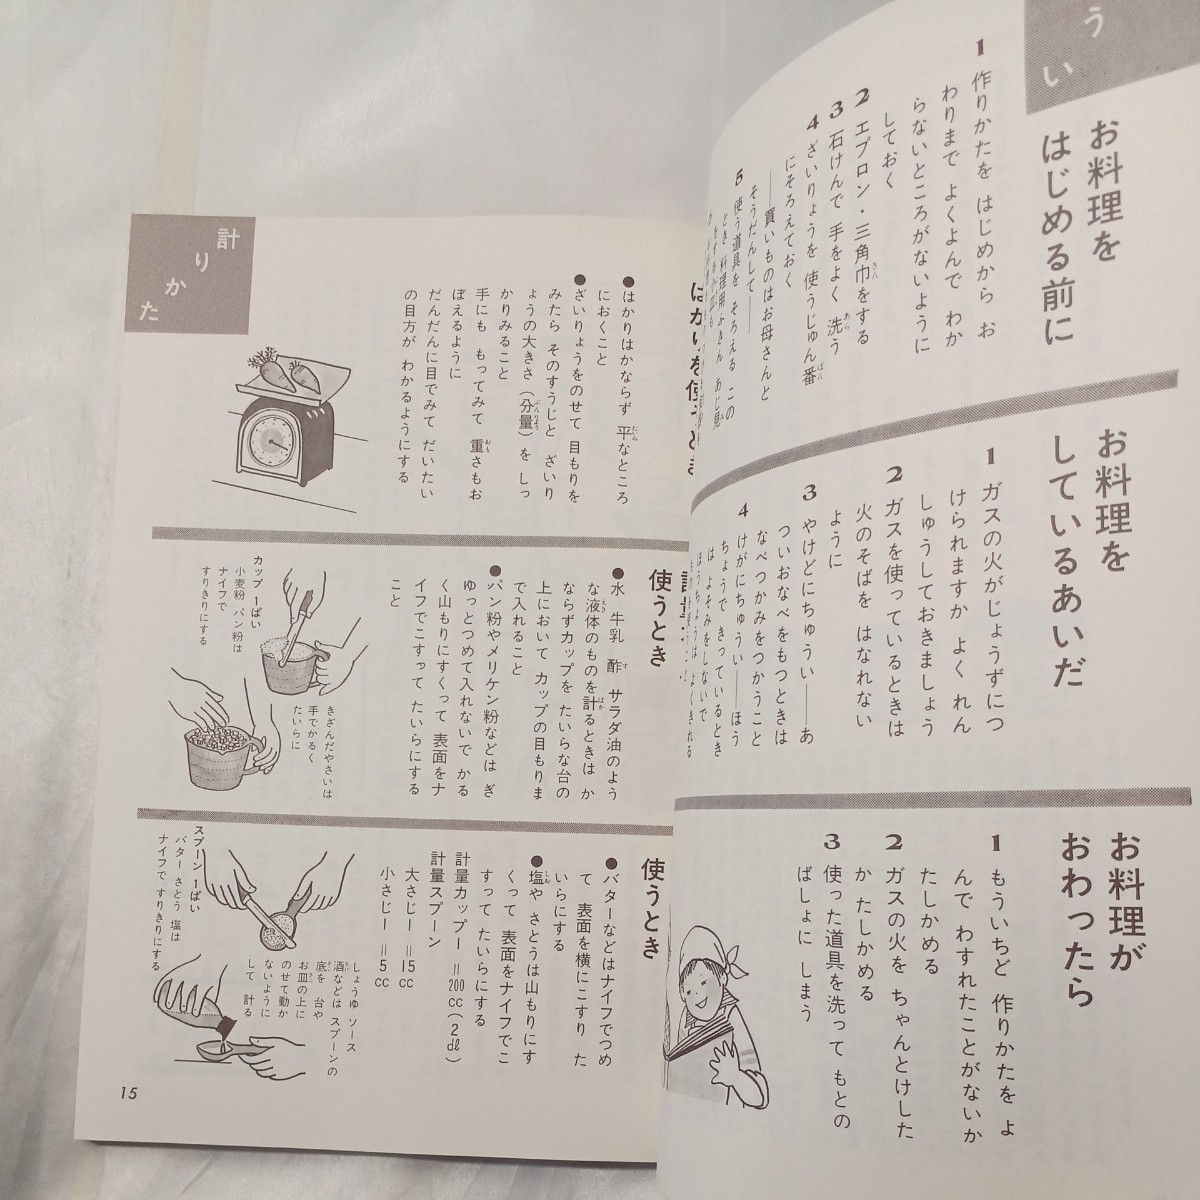 うい
お料理を
はじめる前に
1 作りかたを はじめから お
わりまで よくよんで わか
らないところがないように
しておく
2 エプロン・三角巾をする
3 石けんで 手をよく 洗う
4 ざいりょうを 使うじゅん番
にそろえておく
──買いものはお母さんと
そうだんして──
5 使う道具を そろえる この
とき 料理用ふきん あじ見
お料理を
しているあいだ
1 ガスの火がじょうずにつ
けられますか よく れん
しゅうしておきましょう
2 ガスを使っているときは
火のそばを はなれない
ように
3 やけどにちゅうい──あ
ついおなべをもつときは
なべつかみをつかうこと
4 けがにちゅうい──ほう
ちょうで きっているとき
は よそみをしないで
ほうちょうは よくきれる
お料理が
おわったら
1 もういちど 作りかたを よ
んで わすれたことがないか
たしかめる
2 ガスの火を ちゃんとけした
か たしかめる
3 使った道具を洗って もとの
ばしょに しまう
計りかた
はかりを使うとき
●はかりはかならず 平なところ
におくこと
●ざいりょうをのせて 目もりを
みたら そのすうじと ざいり
ょうの大きさ（分量）を しっ
かりみること
手にも もってみて 重さもお
ぼえるように
だんだんに目でみて だいたい
の目方が わかるようにする
使うとき
●水 牛乳 酢 サラダ油のよう
な液体のものを計るときは か
ならずカップを たいらな台の
上において カップの目もりま
で入れること
●パン粉やメリケン粉などは ぎ
ゅっとつめて入れないで かる
く山もりにすくって 表面をナ
イフでこすって たいらにする
こと
カップ1ぱい
小麦粉 パン粉は
ナイフで
すりきりにする
きざんだやさいは
手でかるく
たいらに
使うとき
●バターなどはナイフでつめ
て 表面を横にこすり た
いらにする
●塩や さとうは山もりにす
くって 表面をナイフでこ
すって たいらにする
計量カップ1＝200cc（2dl）
計量スプーン
大さじ1＝15cc
小さじ1＝5cc
スプーン1ぱい
バター さとう 塩は
ナイフで すりきりにする
しょうゆ ソース
酒などは スプーンの
底を 台や
お皿の上に
のせて動か
ないように
して 計る
15